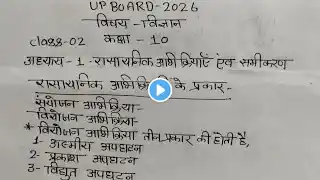 UP BOARD-2026
विषय - विज्ञान
class-02 कक्षा - 10
अध्याय - 1 रासायनिक अभिक्रियाएँ एवं समीकरण
रासायनिक अभिक्रिया के प्रकार-
संयोजन अभिक्रिया-
वियोजन अभिक्रिया-
* वियोजन अभिक्रिया तीन प्रकार की होती है,
1- ऊष्मीय अपघटन
2- प्रकाश अपघटन
3- विद्युत अपघटन